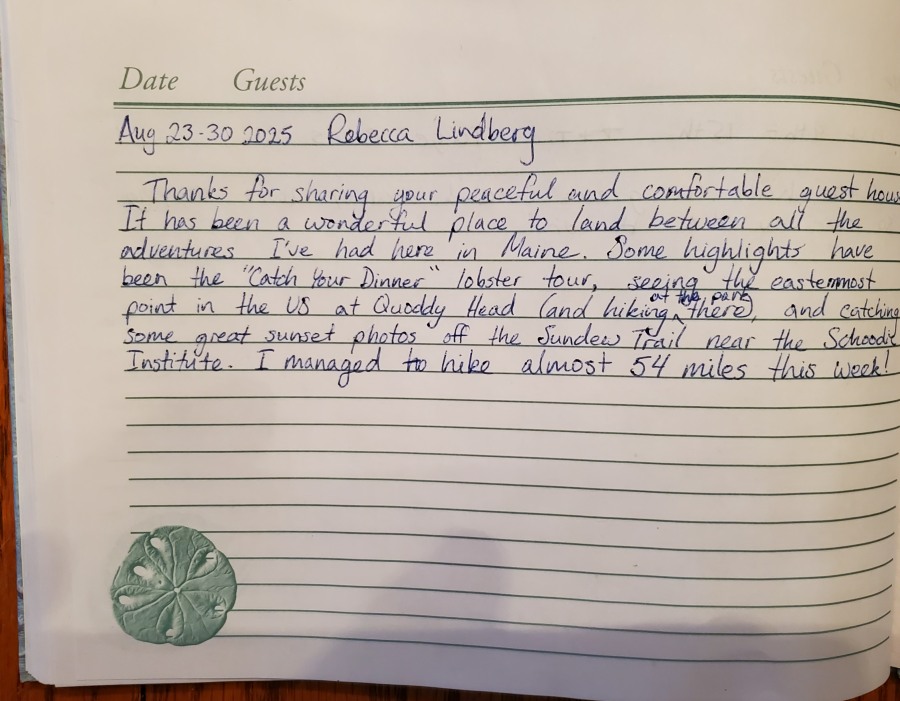 Date Guests
Aug 23-30 2025 Rebecca Lindberg
Thanks for sharing your peaceful and comfortable guest hous
It has been a wonderful place to land between all the
adventures I've had here in Maine. Some highlights have
been the "Catch Your Dinner" lobster tour, seeing the easternmost
at the park
point in the US at Quoddy Head (and hiking there), and catching
some great sunset photos off the Sundew Trail near the Schoodic
Institute. I managed to hike almost 54 miles this week!